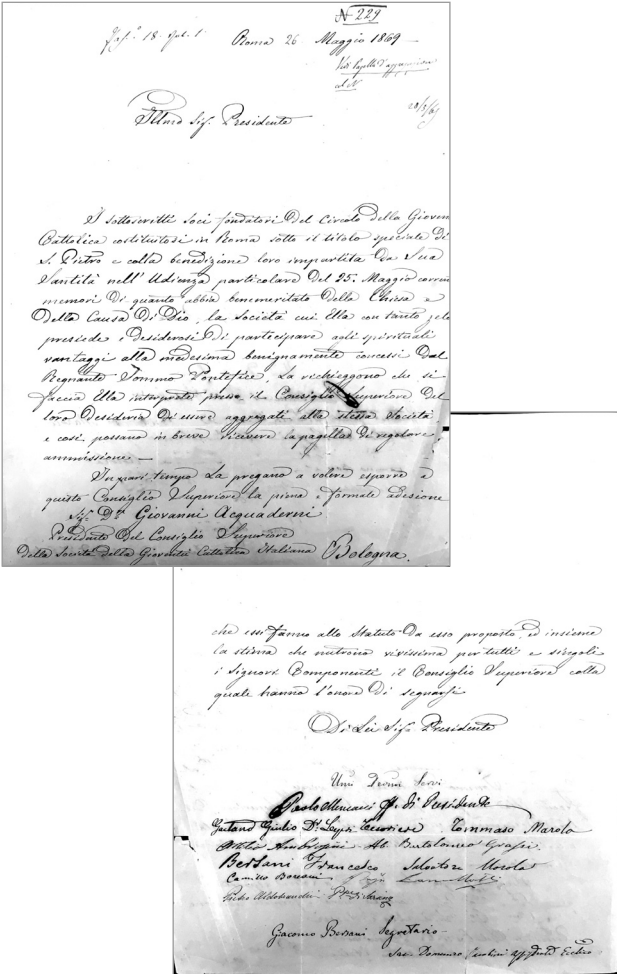 N 229
Fasc. 18. Pal. 1
Roma 26 Maggio 1869
Vedi Capella d'approvazione
al N
28/5/69
Illmo Sig. Presidente
I sottoscritti soci fondatori Del Circolo Della Gioven
Cattolica costituitosi in Roma sotto il titolo speciale di
S. Pietro e colla benedizione loro impartita da Sua
Santità nell'Udienza particolare Del 25. Maggio corren
memori Di quanto abbia benemeritato Della Chiesa e
Della Causa Di Dio, la Società cui Ella con tanto zelo
presiede e desiderosi Di partecipare agli spirituali
vantaggi alla medesima benignamente concessi Dal
Regnante Sommo Pontefice, La richieggono che si
faccia Ella interprete presso il Consiglio Superiore Del
loro desiderio Di essere aggregati alla stessa Società
e così possano in breve ricevere la pagella Di regolare
ammissione —
In pari tempo La pregano a volere esporre a
questo Consiglio Superiore la piena e formale adesione
Sig. Dr. Giovanni Acquaderni
Presidente Del Consiglio Superiore
Della Società Della Gioventù Cattolica Italiana Bologna.
che essi fanno allo Statuto Da esso proposto, ed insieme
la stima che nutrono vivissima per tutti e singoli
i Signori Componenti il Consiglio Superiore colla
quale hanno l'onore Di segnarsi
Di Lei Sig. Presidente
Umi Devmi Servi
Paolo Mencacci ff. di Presidente
Gaetano Giulio Tesoriere Tommaso Marola
Ambrogini Ab. Bartolomeo Grassi
Bersani Francesco Salvatore Marola
Camillo
Pietro Aldobrandini Ppe di Sarsina
Giacomo Bersani Segretario
Sac. Domenico Eccleco